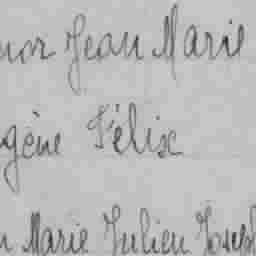 nor Jean Marie
gène Félix
n Marie Julien Joseph